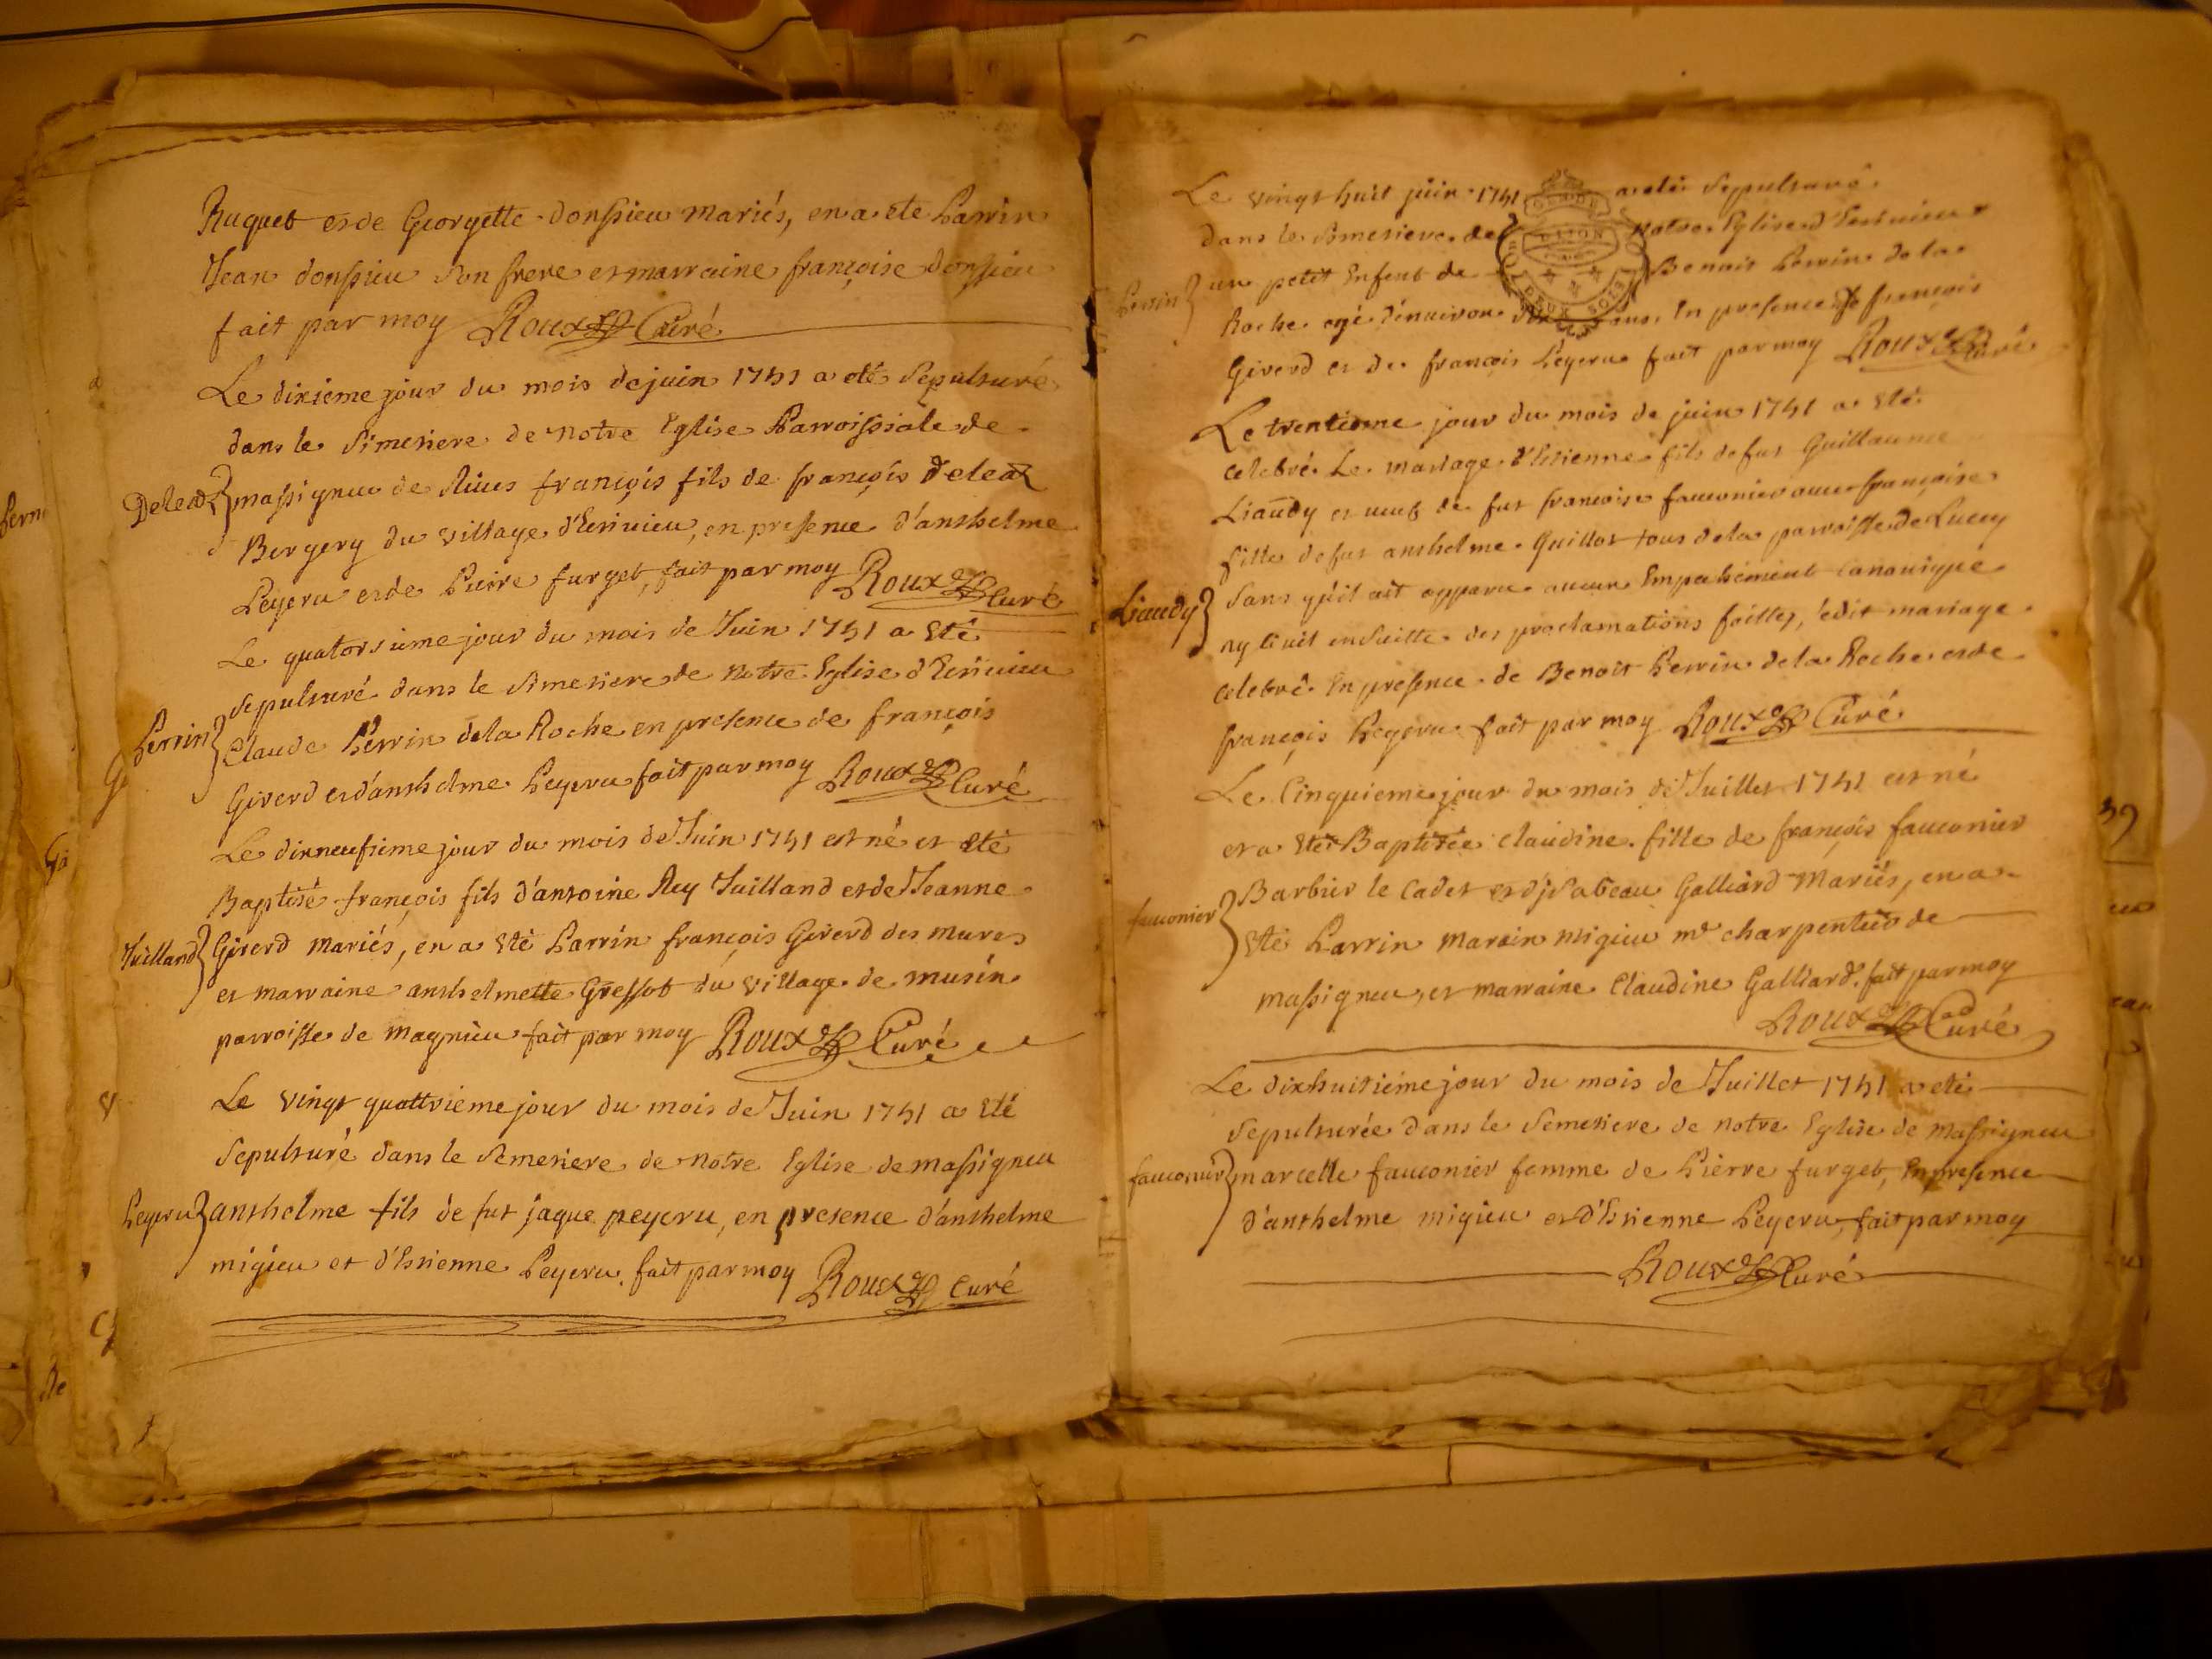 Ruquet et de Georgette donssieu mariés, en a ete Parrin
Jean donssieu son frere et marraine françoise donssieu
fait par moy Roux Curé
Le dixieme jour du mois de juin 1741 a eté sepulturé
dans le simetiere de notre Eglise Parroissiale de
Deleaz massigneu de Rives françois fils de françois Deleaz
Bergery du village d'Ecrivieu, en presence d'anthelme
Peyeru et de Pierre furget, fait par moy Roux Curé
Le quatorsieme jour du mois de Juin 1741 a eté
sepulturé dans le simetiere de notre Eglise d'Ecrivieu
Perrin Claude Perrin de la Roche en presence de françois
Giverd et d'anthelme Peyeru fait par moy Roux Curé
Le dixneufieme jour du mois de Juin 1741 est né et eté
Baptisé françois fils d'antoine Rey Juilland et de Jeanne
Juilland Giverd mariés, en a eté Parrin françois Giverd des mures
et marraine anthelmette Gressot du village de musin
parroisse de magnieu fait par moy Roux Curé
Le vingt quattrieme jour du mois de Juin 1741 a eté
sepulturé dans le semetiere de notre Eglise de massigneu
Peyeru anthelme fils de fut jaque peyeru, en presence d'anthelme
migieu et d'Etienne Peyeru. fait par moy Roux Curé
Le vingt huit juin 1741 a eté sepulturé
dans le simetiere de notre Eglise d'Ecrivieux
Perrin un petit Enfent de Benoit Perrin de la
Roche agé d'environ ans. En presence de françois
Giverd et de françois Peyeru fait par moy Roux Curé
Le trentieme jour du mois de juin 1741 a eté
celebré le mariage d'Etienne fils de fut Guillaume
Liaudy et veuf de fut francoise fauconier avec françoise
fille de fut anthelme Guillot tous de la parroisse de Lucey
Liaudy sans qu'il ait apparu aucun Empechement Canonique
ny Civil ensuitte des proclamations faittes, ledit mariage
celebré En presence de Benoit Perrin de la Roche et de
françois Peyeru fait par moy Roux Curé
Le Cinquieme jour du mois de Juillet 1741 est né
et a eté Baptisée Claudine fille de françois fauconier
fauconier Barbier le Cadet et d'jsabeau Galliard Mariés, en a
eté Parrin Marin Migieu me charpentier de
massigneu, et marraine Claudine Galliard. fait par moy
Roux Curé
Le dixhuitiéme jour du mois de Juillet 1741 a eté
sepulturée dans le semetiere de notre Eglise de Massigneu
fauconier marcelle fauconier femme de Pierre furget, En presence
d'anthelme migieu et d'Etienne Peyeru, fait par moy
Roux Curé